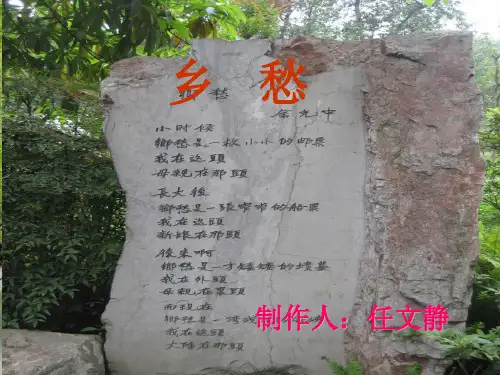 乡 愁
鄉 愁
余光中
小时候
鄉愁是一枚小小的邮票
我在這頭
母親在那頭
長大後
鄉愁是一張窄窄的船票
我在這頭
新娘在那頭
後來啊
鄉愁是一方矮矮的墳墓
我在外頭
母親在裏頭
而現在
鄉愁是一湾
我在這頭
大陸在那頭
制作人：任文静